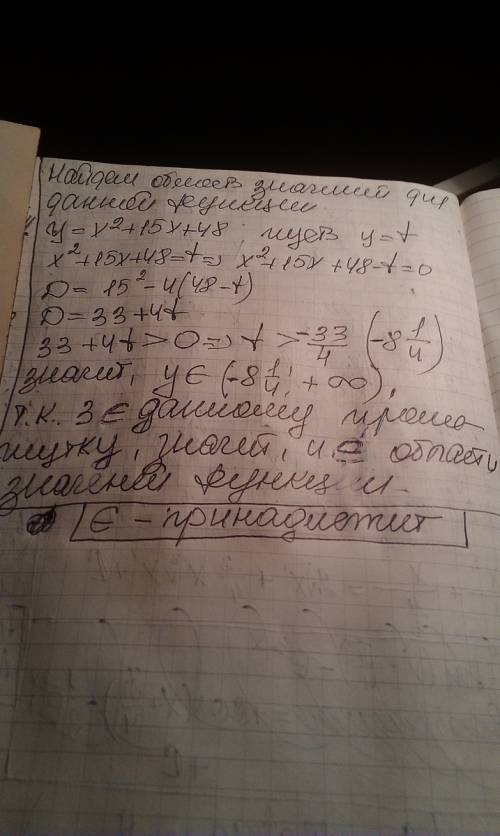 Найдем область значений для
данной функции
y = x²+15x+48 пусть y=t
x²+15x+48=t => x²+15x+48-t=0
D = 15²-4(48-t)
D = 33+4t
33+4t > 0 => t > -33/4 (-8 1/4)
значит, y ∈ (-8 1/4; +∞),
т.к. 3 ∈ данному проме-
жутку, значит, и ∈ области
значений функции.
∈ - принадлежит